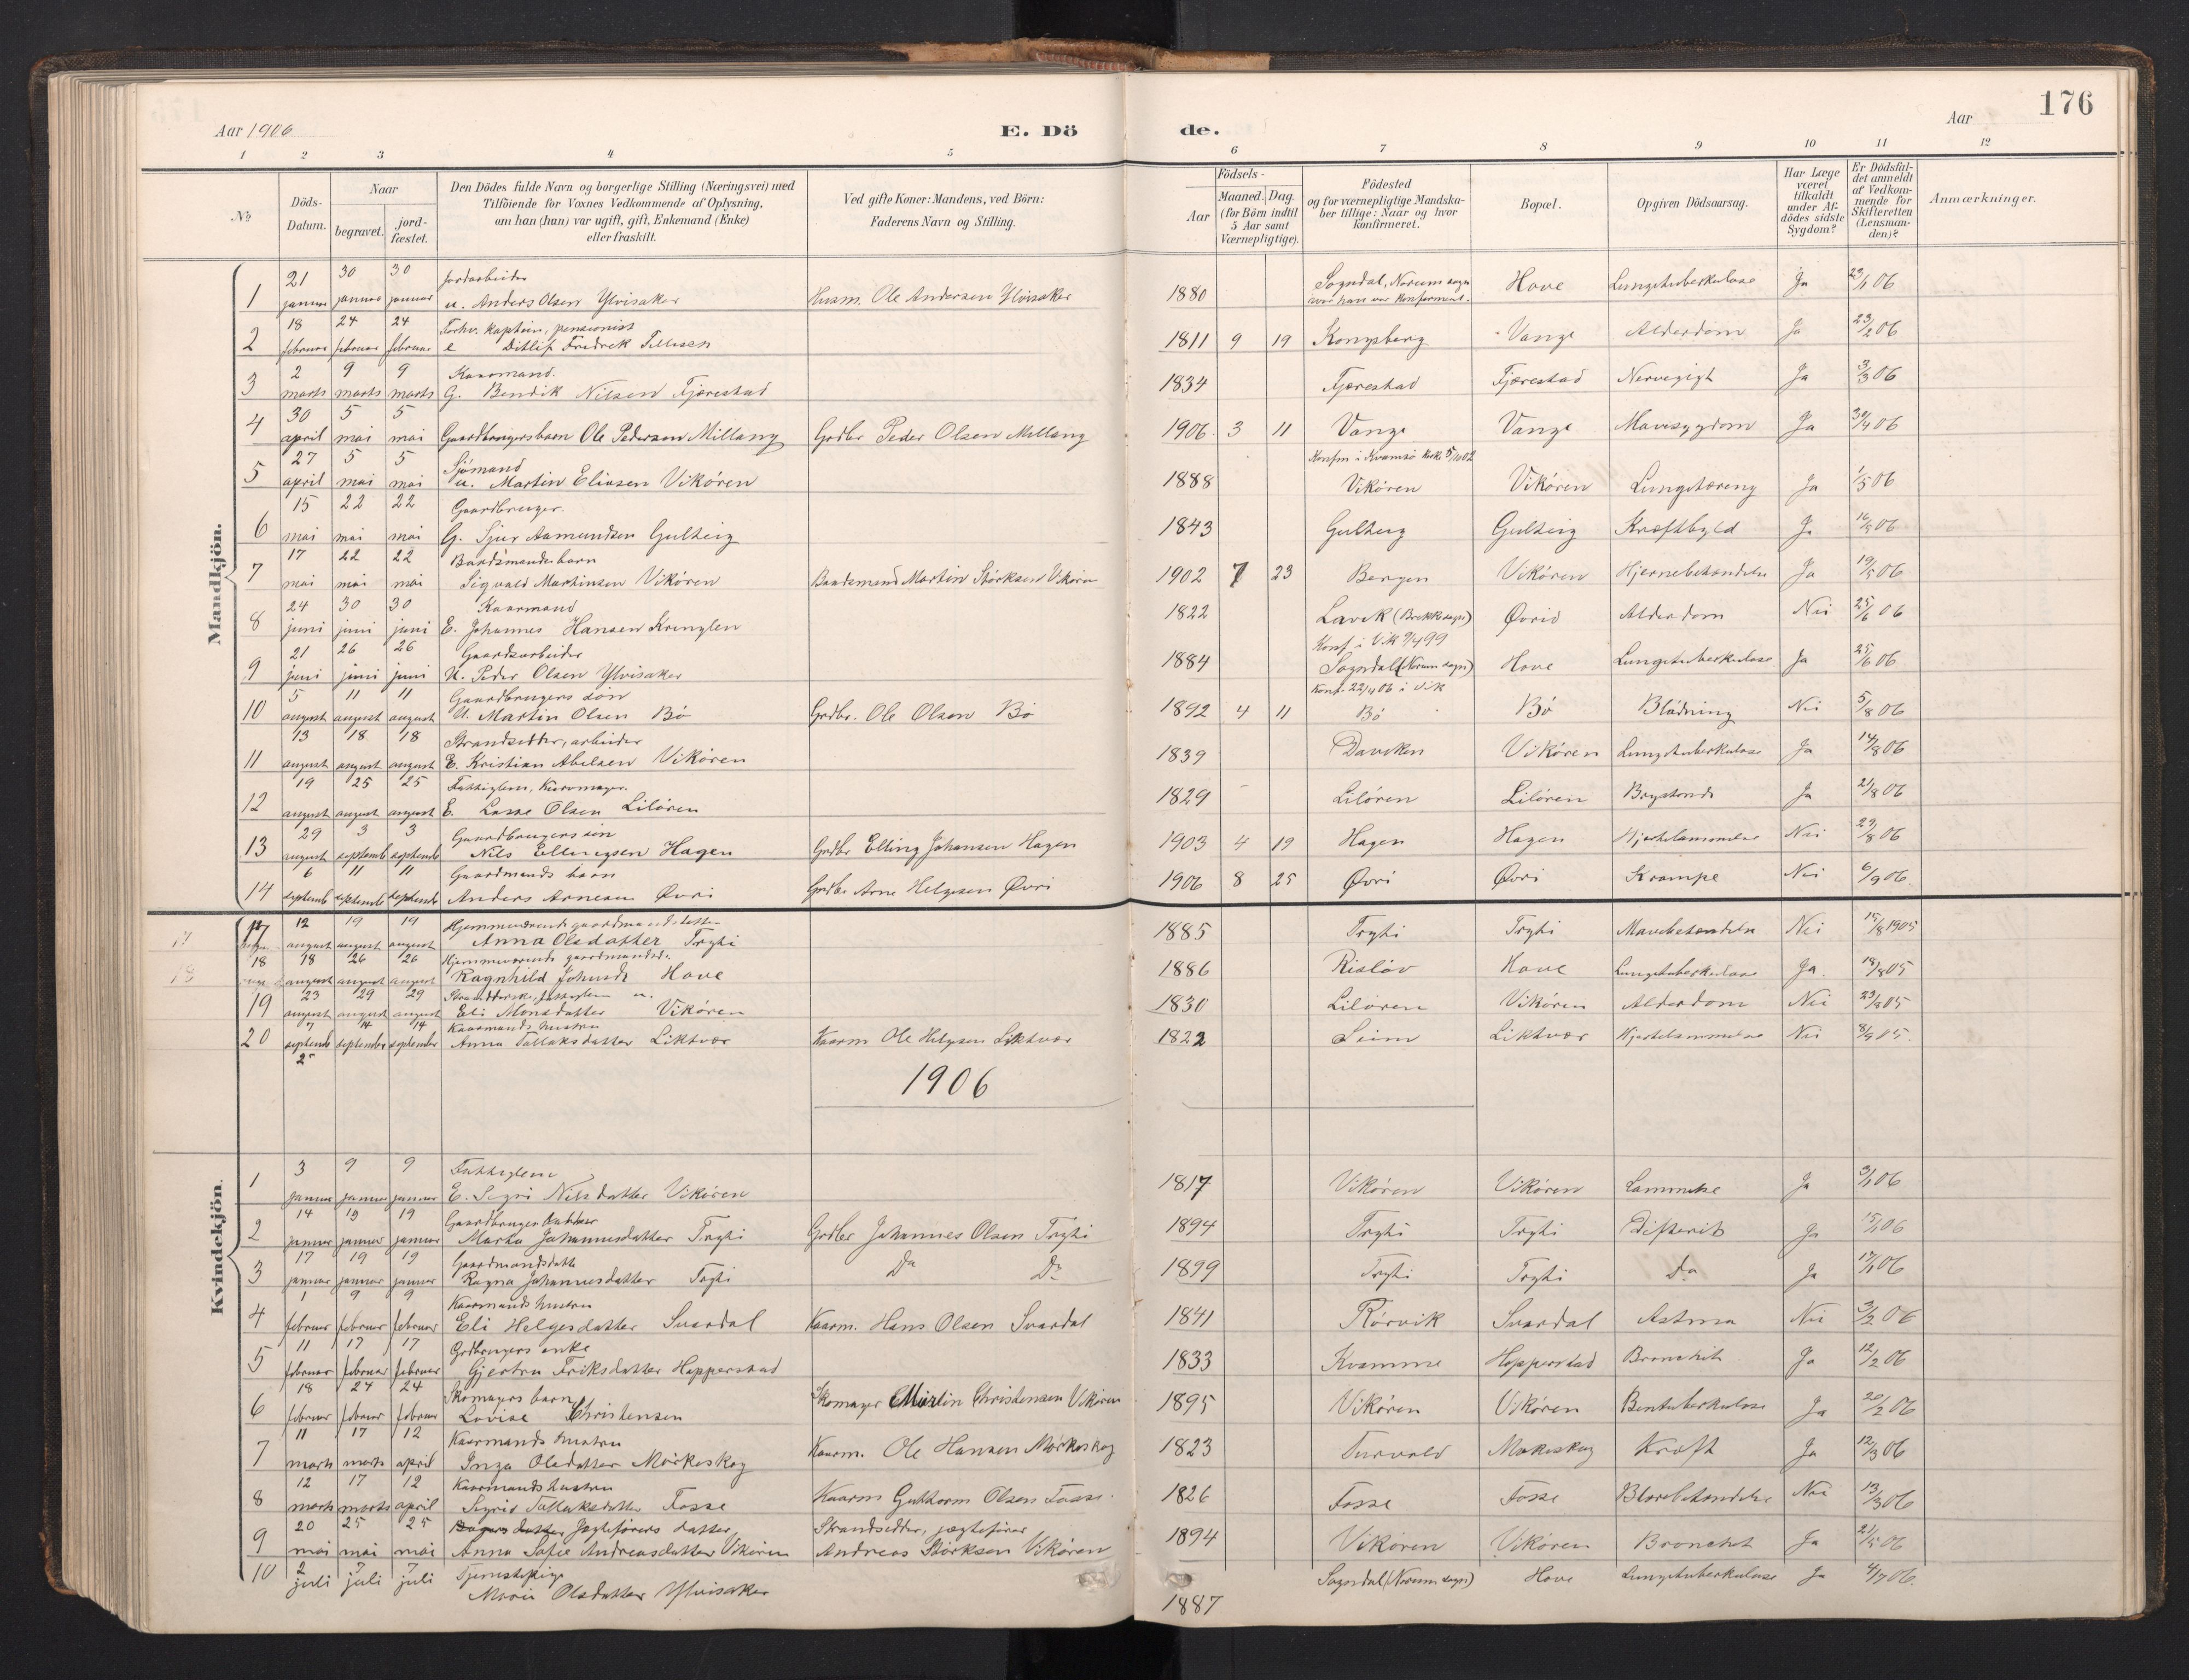 176
Aar 1906
E. Dö de.
Aar
1 2 3 4 5 6 7 8 9 10 11 12
№
Döds-Datum.
Naar
begravet.
jord-fæstet.
Den Dödes fulde Navn og borgerlige Stilling (Næringsvei) med
Tilföiende for Voxnes Vedkommende af Oplysning,
om han (hun) var ugift, gift, Enkemand (Enke)
eller fraskilt.
Ved gifte Koner: Mandens, ved Börn:
Faderens Navn og Stilling.
Födsels-
Aar
Maaned. Dag.
(for Börn indtil
5 Aar samt
Værnepligtige).
Födested
og for værnepligtige Mandska-
ber tillige: Naar og hvor
konfirmeret.
Bopæl.
Opgiven Dödsaarsag.
Har Læge
været
tilkaldt
under Af-
dödes sidste
Sygdom?
Er Dödsfal-
det anmeldt
af Vedkom-
mende for
Skifteretten
(Lensman-
den)?
Anmærkninger.
Mandkjön.
1 21 januar 30 januar 30 januar Jordarbeider
u. Anders Olsen Ylvisaker Husm. Ole Andersen Ylvisaker 1880 Sogndal, Norum sogn
hvor han var konfirmert. Hove Lungetuberkulose Ja 23/1 06
2 18 februar 24 februar 24 februar Forhv. kaptein, pensionist
e Ditlif Fredrik Tellesen 1811 9 19 Kongsberg Vange Alderdom Ja 23/2 06
3 2 marts 9 marts 9 marts Kaarmand.
G. Bendik Nilsen Fjærestad 1834 Fjærestad Fjærestad Nervegigt Ja 3/3 06
4 30 april 5 mai 5 mai Gaardbrugersbarn Ole Pedersen Millang Grdbr Peder Olsen Millang 1906. 3 11 Vange Vange Mavesygdom Ja 30/4 06
5 27 april 5 mai 5 mai Sjómand
u. Martin Eliasen Vikóren 1888 Konfm i Kvamsö kirke 5/10 02
Vikóren Vikóren Lungetæring Ja 1/5 06
6 15 mai 22 mai 22 mai Gaardbruger.
G. Sjur Aamundsen Gulteig 1843 Gulteig Gulteig Kræftbyld Ja 16/5 06
7 17 mai 22 mai 22 mai Baadsmandsbarn
Sigvald Martinsen Vikóren Baadsmand Martin Störksen Vikóren 1902 7 23 Bergen Vikóren Hjernebetændelse Ja 19/5 06
8 24 juni 30 juni 30 juni Kaarmand
E. Johannes Hansen Kringlen 1822 Lavik (Brekke sogn) Óvrid Alderdom Nei 25/6 06
9 21 juni 26 juni 26 juni Gaardsarbeider
U. Peder Olsen Ylvisaker 1884 Konf. i Vik 9/4 99
Sogndal (Norum sogn) Hove Lungetuberkulose Ja 25/6 06
10 5 august 11 august 11 august Gaardbrugers sön
U. Martin Olsen Bó Grdbr. Ole Olsen Bó 1892 4 11 Konf. 22/4 06 i Vik
Bó Bó Blódning Nei 5/8 06
11 13 august 18 august 18 august Strandsidder, arbeider
E. Kristian Abelsen Vikóren 1839 Daviken Vikóren Lungetuberkulose Ja 14/8 06
12 19 august 25 august 25 august Fattiglem, Kurvmager.
E. Lasse Olsen Lilóren 1829 Lilóren Lilóren Brystonde Ja 21/8 06
13 29 august 3 septemb 3 septemb Gaardbrugers sön
Nils Ellingsen Hagen Grdbr Elling Johansen Hagen 1903 4 19 Hagen Hagen Hjertelammelse Nei 29/8 06
14 6 septemb 11 septemb 11 septemb Gaardmands barn
Anders Arnesen Óvri Grdbr Arne Helgesen Óvri 1906 8 25 Óvri Óvri Krampe Nei 6/9 06.
17 12 august 19 august 19 august Hjemmeværende gaardmandsdatter
Anna Olsdatter Tryti 1885 Tryti Tryti Mavebetændelse Nei 15/8 1905
18 18 august 26 august 26 august Hjemmeværende gaardmandsd.
Ragnhild Johnsdr Hove 1886 Risløv Hove Lungetuberkulose Ja. 18/8 05
19 23 august 29 august 29 august fattiglem u.
Eli Monsdatter Vikóren 1830 Lilóren Vikóren Alderdom Nei 23/8 05
20 7 septemb 14 september 14 september Kaarmands hustru
Anna Tollaksdatter Liktvor Kaarm Ole Helgesen Liktvor 1822 Seim Liktvor Hjertelammelse Nei 8/9 05.
25
1906
Kvindekjön.
1 3 januar 9 januar 9 januar Fattiglem
E. Sigri Nilsdatter Vikóren 1817 Vikóren Vikóren Lammelse Ja 3/1 06
2 14 januar 19 januar 19 januar Gaardbruger datter
Marta Johannesdatter Tryti Grdbr Johannes Olsen Tryti 1894 Tryti Tryti Difterit Ja 15/1 06
3 17 januar 19 januar 19 januar Gaardmandsdatter
Ragna Johannesdatter Tryti Do Do 1899 Tryti Tryti Do Ja 17/1 06
4 1 februar 9 februar 9 februar Kaarmands hustru
Eli Helgesdatter Svardal Kaarm. Hans Olsen Svardal 1841 Rórvik Svardal Astma Nei 3/2 06
5 11 februar 17 februar 17 februar Grdbrugers enke
Gjertru Eriksdatter Hopperstad 1833 Kvamme Hopperstad Bronchit Ja 12/2 06
6 18 februar 24 februar 24 februar Skomagers barn
Lovise Christensen Skomager Martin Christensen Vikóren 1895 Vikóren Vikóren Bentuberkulose Ja 20/2 06
7 11 marts 17 marts 12 april Kaarmands hustru
Inga Olsdatter Mórkeskog Kaarm. Ole Hansen Mórkeskog 1823 Turvold Mørkeskog Kræft Ja 12/3 06
8 12 marts 17 marts 12 april Kaarmands hustru
Sigrid Tollaksdatter Fosse Kaarm Guttorm Olsen Fosse. 1826 Fosse Fosse Blærebetændelse Nei 13/3 06
9 20 mai 25 mai 25 mai Jagtefórers datter
Anna Sofie Andreasdatter Vikóren Strandsidder, jægtefórer
Andreas Störksen Vikóren 1894 Vikóren Vikóren Bronchit Ja 21/5 06
10 2 juli 7 juli 7 juli Tjenestepige
Marie Olsdatter Ylvisaker 1887 Sogndal (Norum sogn) Hove Lungetuberkulose Ja 4/7 06.